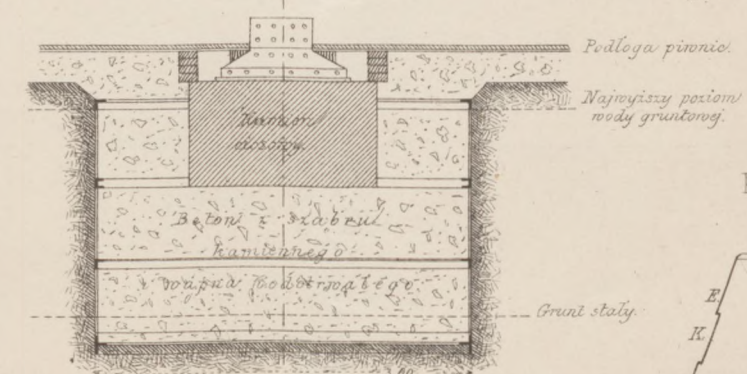 Podłoga piwnic.
Najwyższy poziom
wody gruntowej.
Kamień
ciosowy.
Beton z szabru
kamiennego
i wapna wodotrwałego
Grunt stały.
E
K